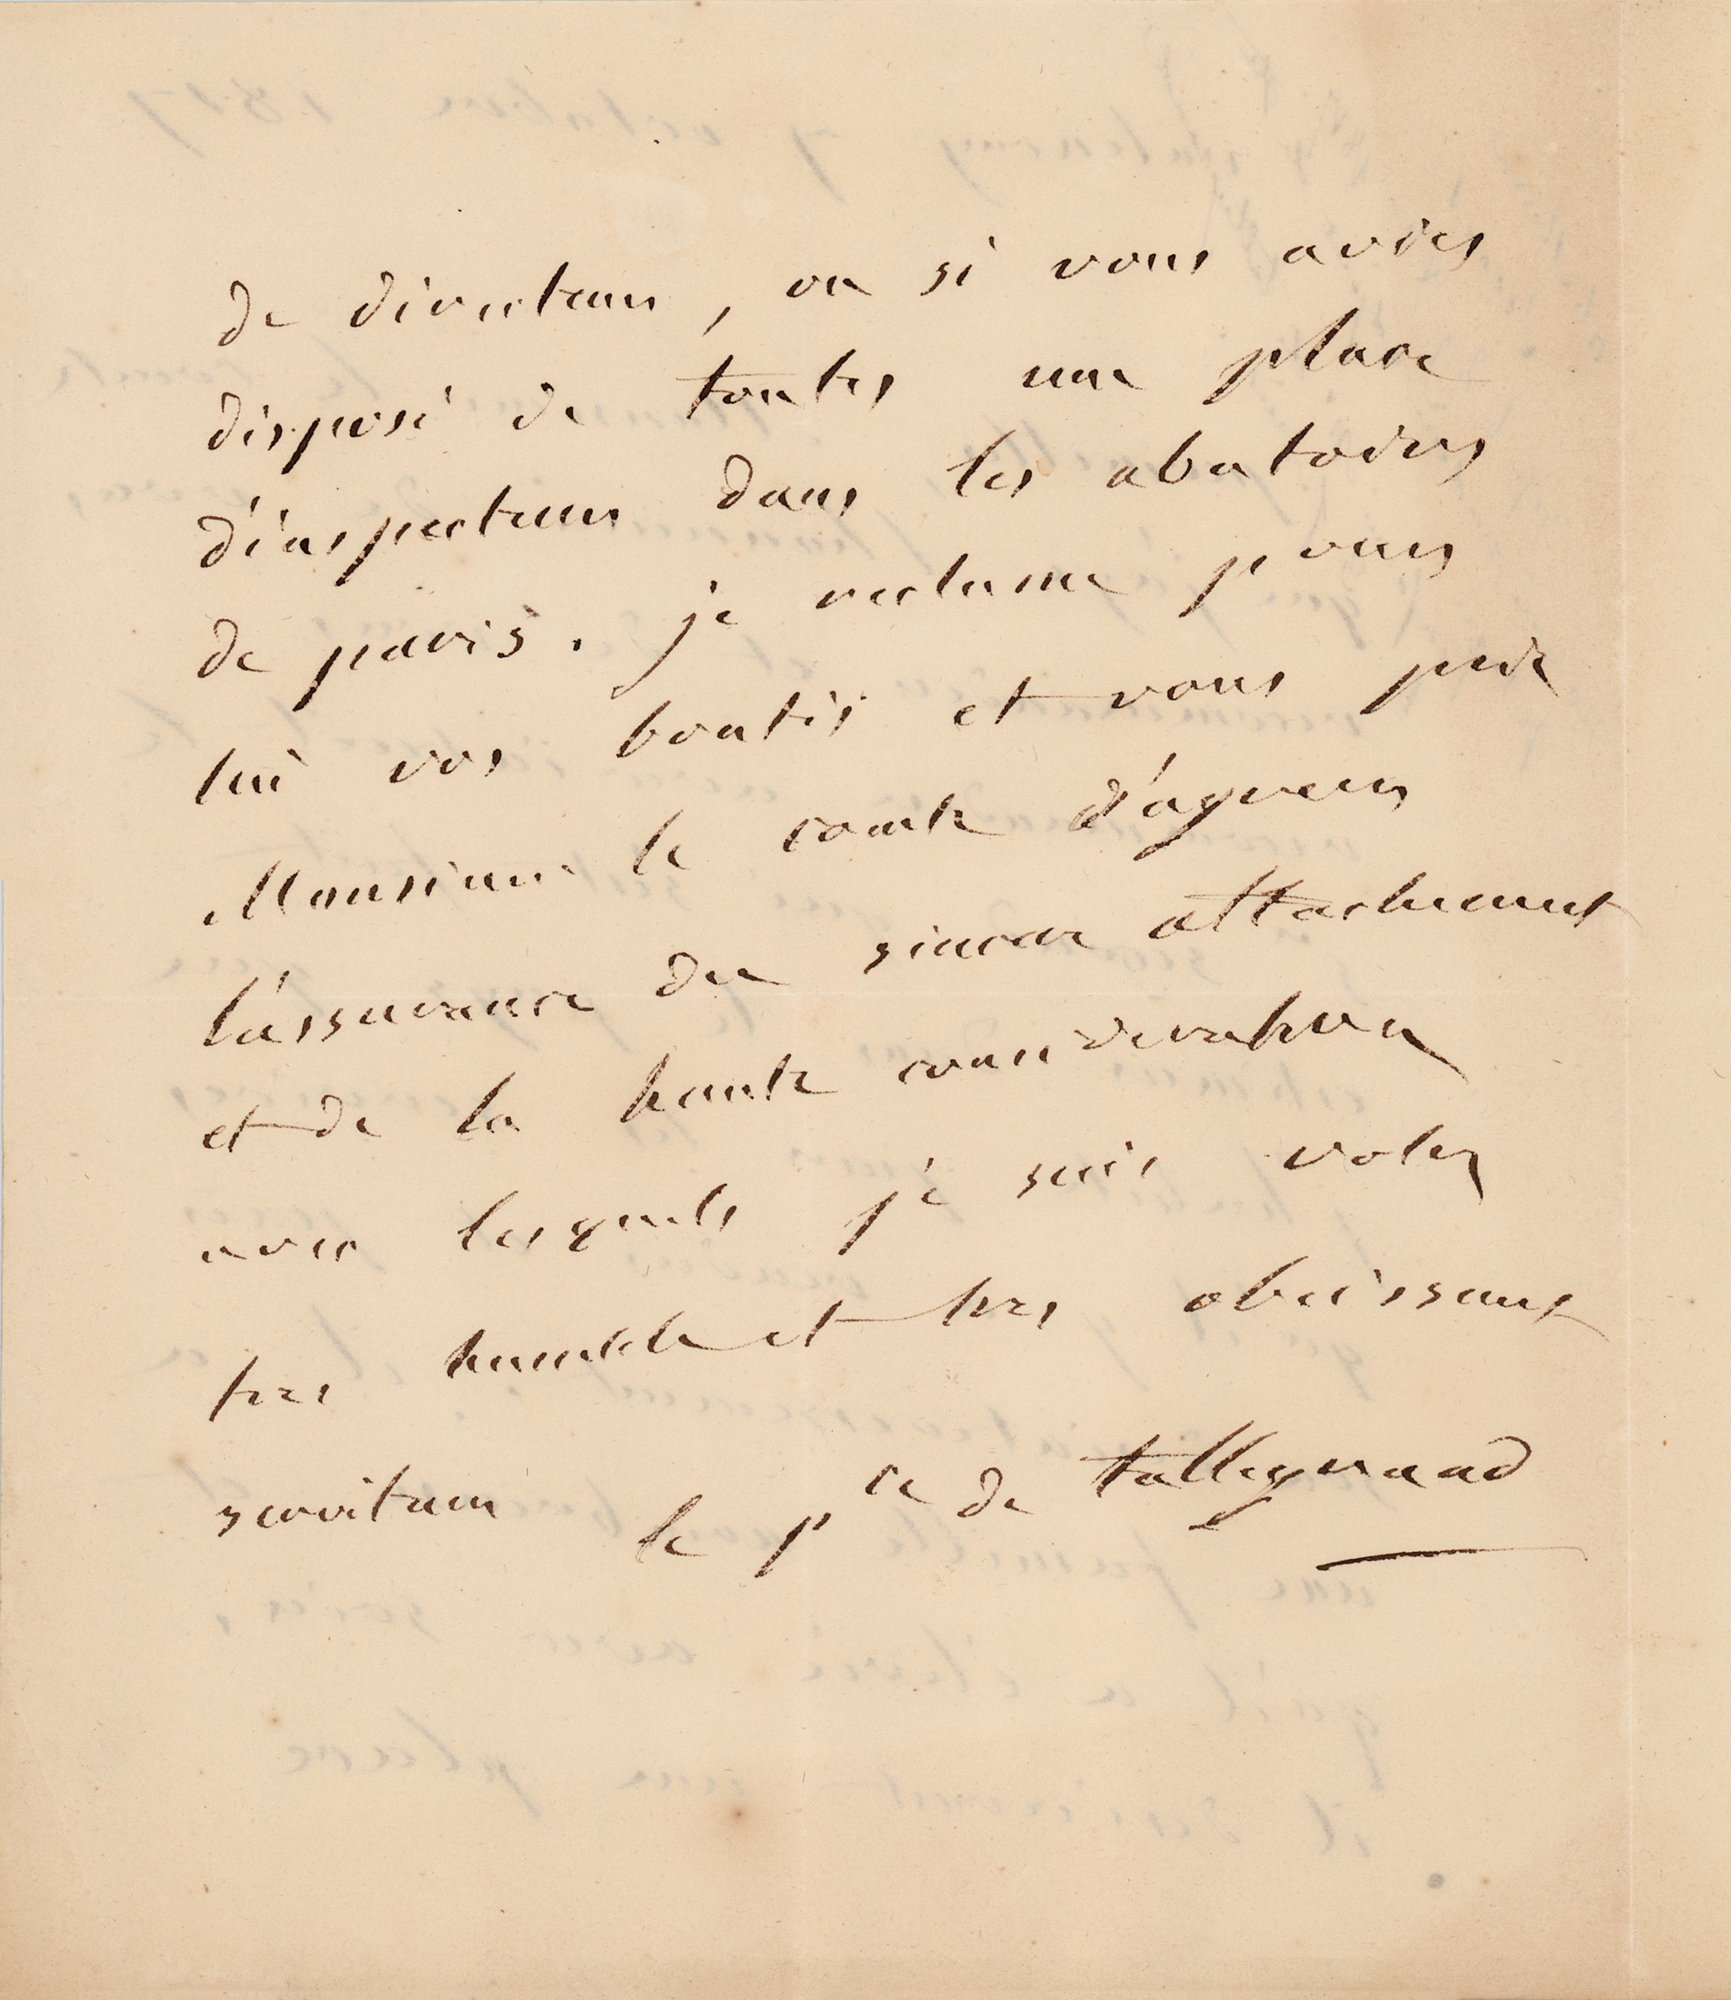 de directeur, ou si vous aviés
disposé de toutes une place
d'inspecteur dans les abatoires
de paris. je reclame pour
lui vos bontés et vous prie
Monsieur le comte d'agréer
l'assurance du sincere attachement
et de la haute consideration
avec lesquels je suis votre
tres humble et tres obeissant
serviteur le p^ce de talleyrand